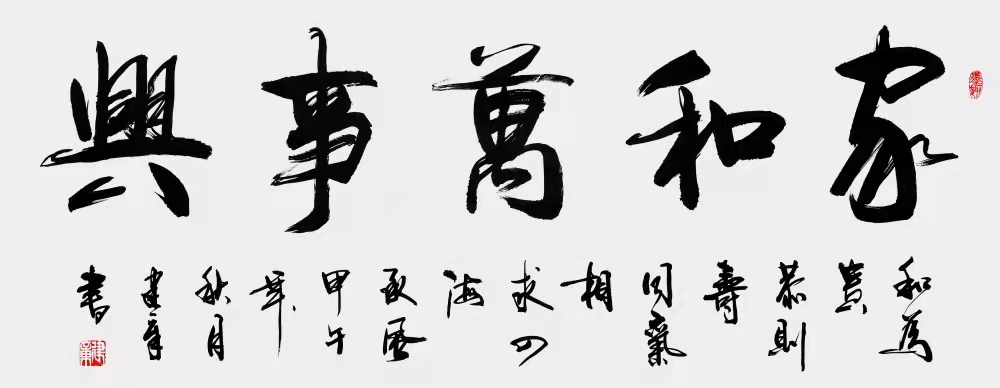 家和萬事興
和為
貴
恭則
壽
同氣
相
求四
海
承風
甲午
年
秋月
建章
書